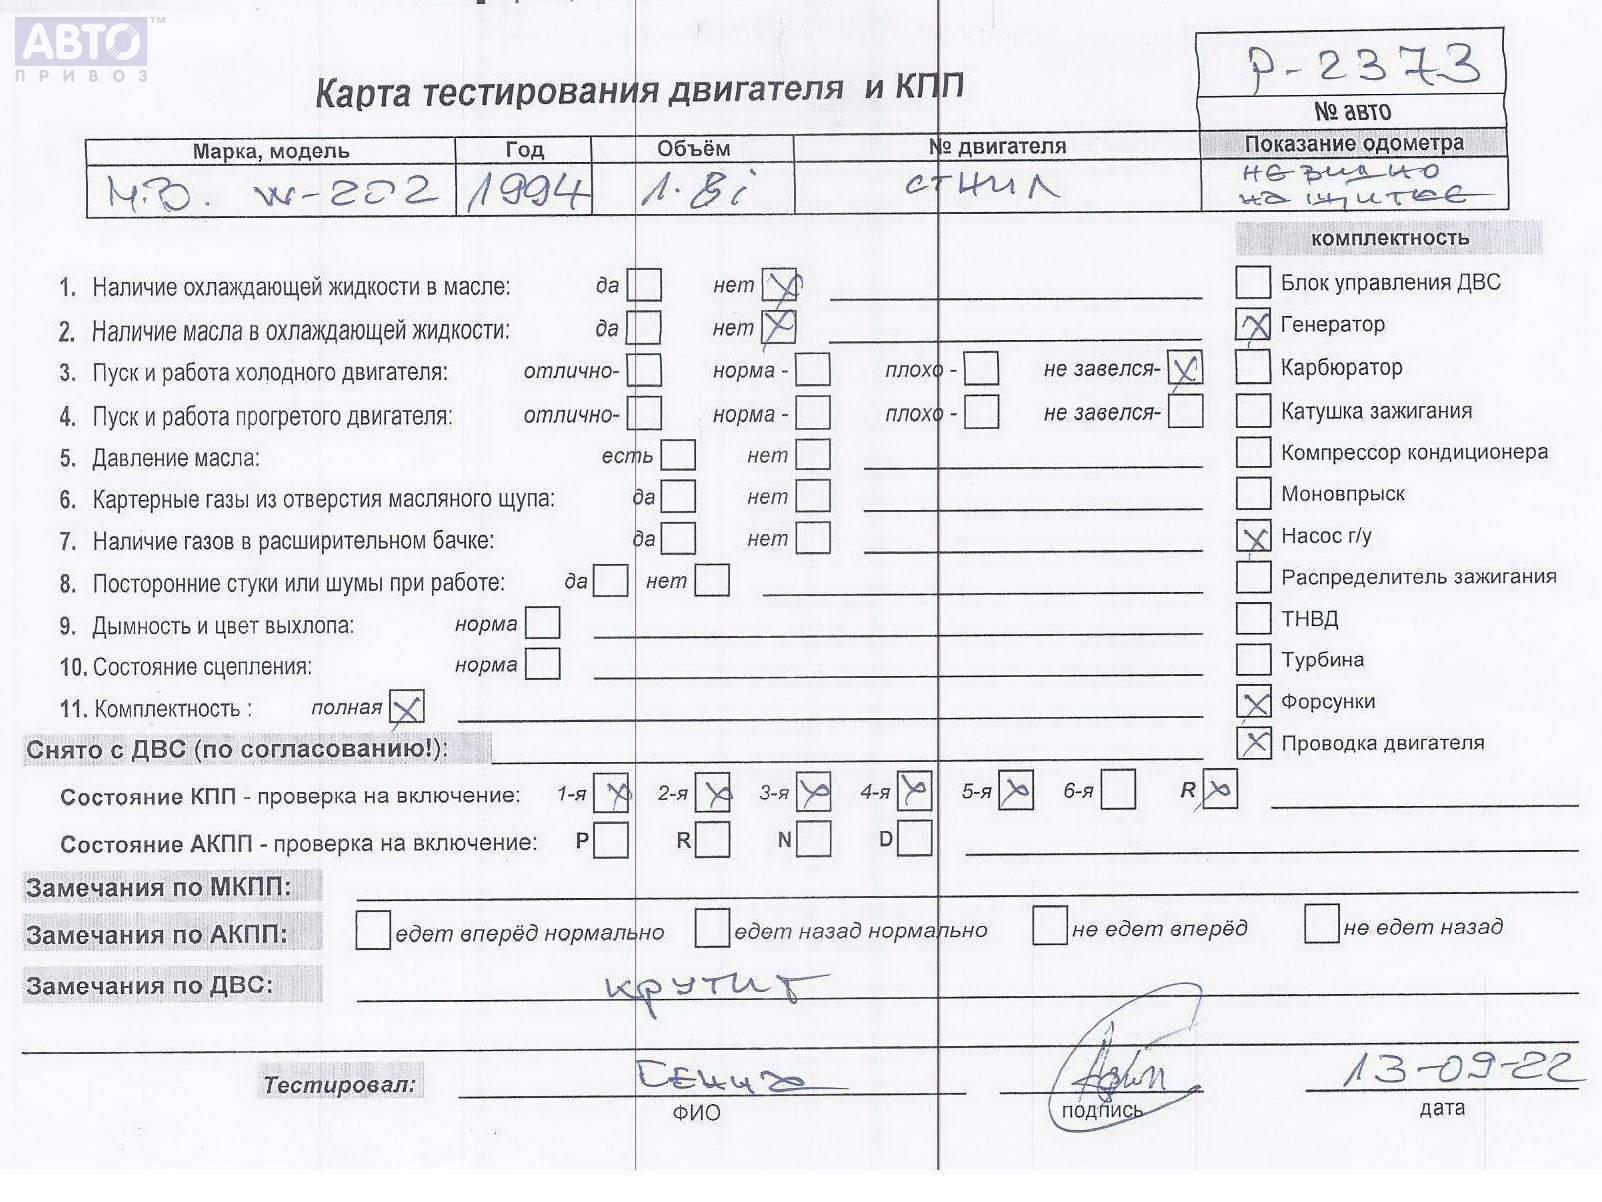 АВТО™
ПРИВОЗ
Р-2373
Карта тестирования двигателя и КПП
№ авто
Марка, модель Год Объём № двигателя Показание одометра
М.Б. W-202 1994 1.8i СТНИЛ НЕ ВИДНО
НА ЩИТКЕ
комплектность
1. Наличие охлаждающей жидкости в масле: да нет Блок управления ДВС
2. Наличие масла в охлаждающей жидкости: да нет Генератор
3. Пуск и работа холодного двигателя: отлично- норма - плохо - не завелся- Карбюратор
4. Пуск и работа прогретого двигателя: отлично- норма - плохо - не завелся- Катушка зажигания
5. Давление масла: есть нет Компрессор кондиционера
6. Картерные газы из отверстия масляного щупа: да нет Моновпрыск
7. Наличие газов в расширительном бачке: да нет Насос г/у
8. Посторонние стуки или шумы при работе: да нет Распределитель зажигания
9. Дымность и цвет выхлопа: норма ТНВД
10. Состояние сцепления: норма Турбина
11. Комплектность : полная Форсунки
Снято с ДВС (по согласованию!): Проводка двигателя
Состояние КПП - проверка на включение: 1-я 2-я 3-я 4-я 5-я 6-я R
Состояние АКПП - проверка на включение: P R N D
Замечания по МКПП:
Замечания по АКПП: едет вперёд нормально едет назад нормально не едет вперёд не едет назад
Замечания по ДВС: крутит
Тестировал: 13-09-22
ФИО подпись дата